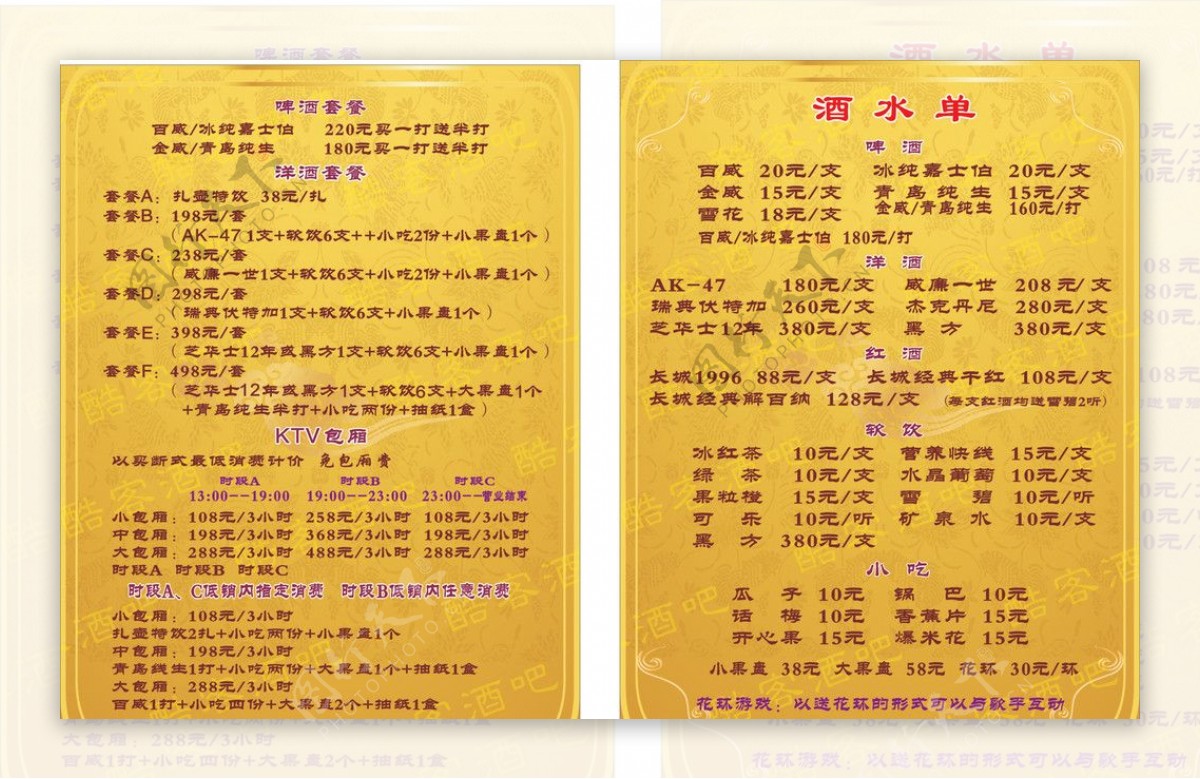 啤酒套餐
百威/冰纯嘉士伯 220元买一打送半打
金威/青岛纯生 180元买一打送半打
洋酒套餐
套餐A：扎壶特饮 38元/扎
套餐B：198元/套
（AK-47 1支+软饮6支++小吃2份+小果盘1个）
套餐C：238元/套
（威廉一世1支+软饮6支+小吃2份+小果盘1个）
套餐D：298元/套
（瑞典伏特加1支+软饮6支+小果盘1个）
套餐E：398元/套
（芝华士12年或黑方1支+软饮6支+小果盘1个）
套餐F：498元/套
（芝华士12年或黑方1支+软饮6支+大果盘1个
+青岛纯生半打+小吃两份+抽纸1盒）
KTV包厢
以买断式最低消费计价 免包厢费
时段A 时段B 时段C
13:00--19:00 19:00--23:00 23:00--营业结束
小包厢：108元/3小时 258元/3小时 108元/3小时
中包厢：198元/3小时 368元/3小时 198元/3小时
大包厢：288元/3小时 488元/3小时 288元/3小时
时段A 时段B 时段C
时段A、C低销内指定消费 时段B低销内任意消费
小包厢：108元/3小时
扎壶特饮2扎+小吃两份+小果盘1个
中包厢：198元/3小时
青岛线生1打+小吃两份+大果盘1个+抽纸1盒
大包厢：288元/3小时
百威1打+小吃四份+大果盘2个+抽纸1盒
酒水单
啤酒
百威 20元/支 冰纯嘉士伯 20元/支
金威 15元/支 青岛纯生 15元/支
雪花 18元/支 金威/青岛纯生 160元/打
百威/冰纯嘉士伯 180元/打
洋酒
AK-47 180元/支 威廉一世 208元/支
瑞典伏特加 260元/支 杰克丹尼 280元/支
芝华士12年 380元/支 黑方 380元/支
红酒
长城1996 88元/支 长城经典干红 108元/支
长城经典解百纳 128元/支 （每支红酒均送雪碧2听）
软饮
冰红茶 10元/支 营养快线 15元/支
绿茶 10元/支 水晶葡萄 10元/支
果粒橙 15元/支 雪碧 10元/听
可乐 10元/听 矿泉水 10元/支
黑方 380元/支
小吃
瓜子 10元 锅巴 10元
话梅 10元 香蕉片 15元
开心果 15元 爆米花 15元
小果盘 38元 大果盘 58元 花环 30元/环
花环游戏：以送花环的形式可以与歌手互动